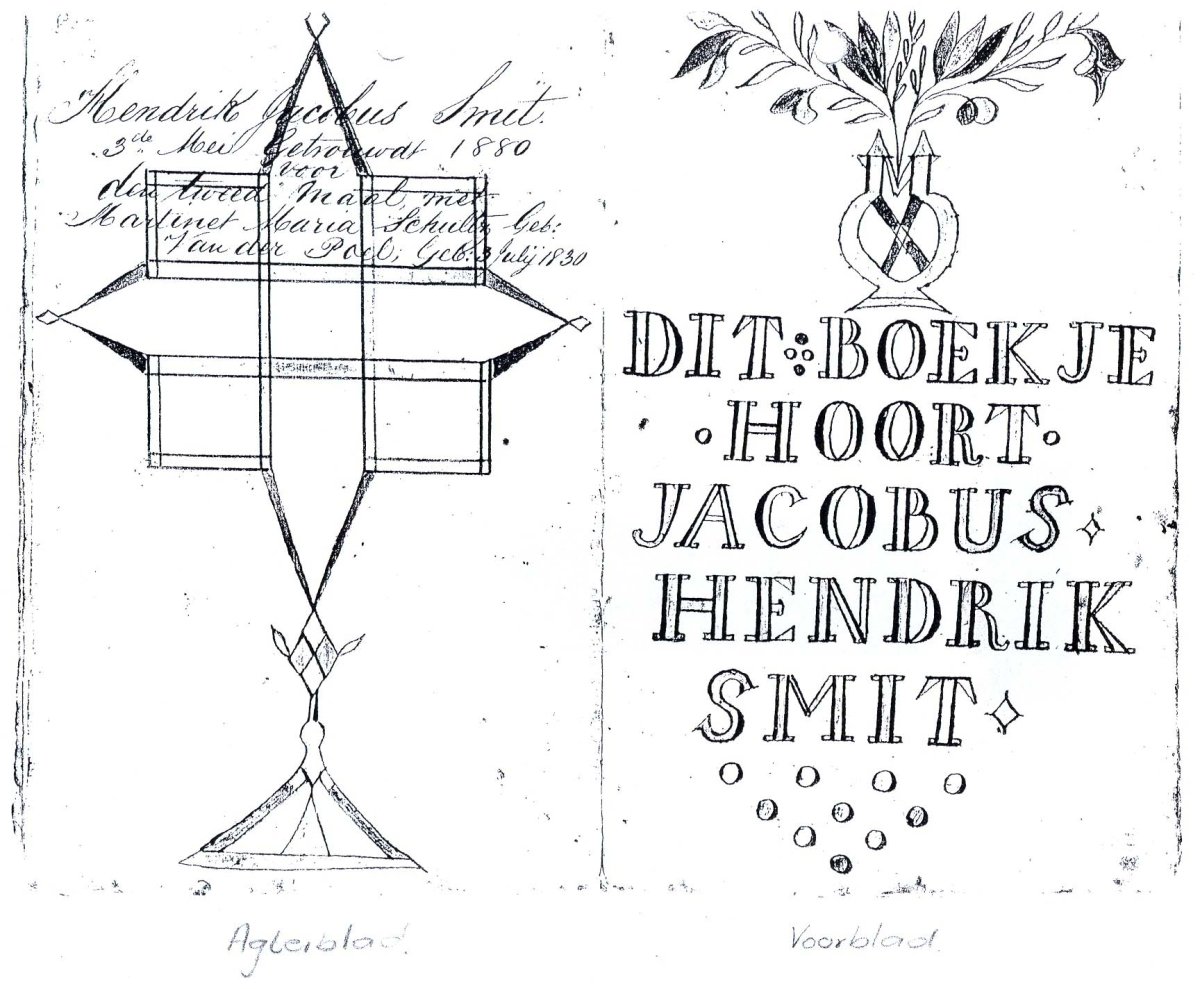 Hendrik Jacobus Smit.
3de Mei Getrouwdt 1880
voor
den tweed Maal, met
Martinet Maria Schultz, Geb:
Van der Poel; Geb: 3 Julij 1830
DIT BOEKJE
HOORT
JACOBUS
HENDRIK
SMIT
Agterblad.
Voorblad.